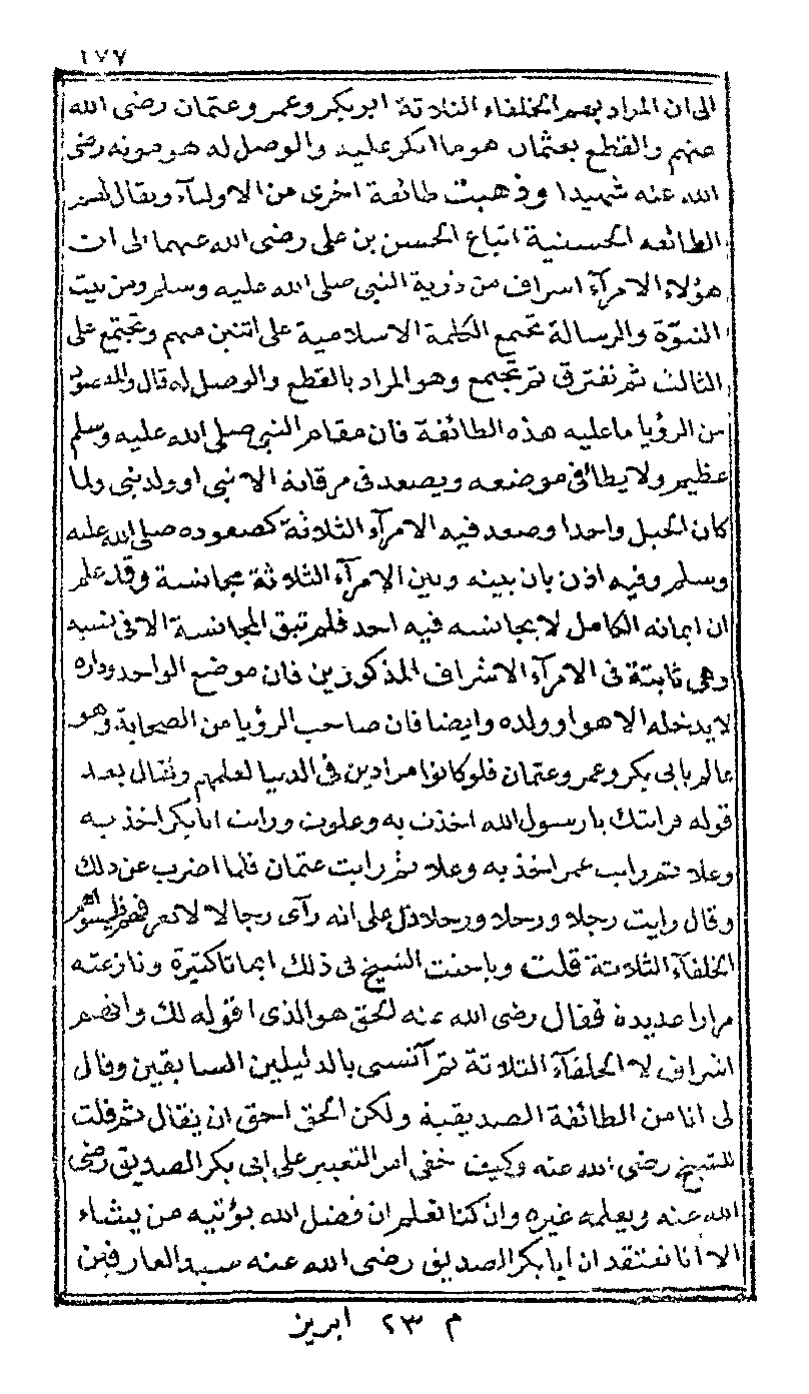 ١٧٧
الى ان المراد بهم الخلفاء الثلاثة ابو بكر وعمر وعثمان رضى الله
عنهم والقطع بعثمان هو ما انكر عليه والوصل له هو موته رضى
الله عنه شهيدا وذهبت طائفة اخرى من الاولياء ويقال لهم
الطائفة الحسنية اتباع الحسن بن على رضى الله عنهما الى ان
هؤلاء الامرآء اشراف من ذرية النبى صلى الله عليه وسلم ومن بيت
النبوّة والرسالة تجتمع الكلمة الاسلامية على اثنين منهم وتجتمع على
الثالث ثم تفترق ثم تجتمع وهو المراد بالقطع والوصل له قال والمقصود
من الرؤيا ما عليه هذه الطائفة فان مقام النبى صلى الله عليه وسلم
عظيم ولا يطأ فى موضعه ويصعد فى مرقاته الا نبى او ولد نبى ولما
كان الحبل واحدا وصعد فيه الامرآء الثلاثة كصعوده صلى الله عليه
وسلم وفيه اذن بان بينه وبين الامرآء الثلاثة مجانسة وقد علم
ان ايمانه الكامل لا يجانسه فيه احد فلم تبق المجانسة الا فى نسبه
وهى ثابتة فى الامرآء الاشراف المذكورين فان موضع الواحد وداره
لا يدخله الا هو او ولده وايضا فان صاحب الرؤيا من الصحابة وهو
عالم بابى بكر وعمر وعثمان فلو كانوا مرادين فى الدنيا لعلمهم ولقال بعد
قوله فرأيتك يا رسول الله اخذت به وعلوت ورايت ابا بكر اخذ به
وعلا ثم رايت عمر اخذ به وعلا ثم رايت عثمان فلما اضرب عن ذلك
وقال رايت رجلا ورجلا ورجلا دل على انه رآى رجالا لا تعرفهم فليسوا هم
الخلفآء الثلاثة قلت وباحثت الشيخ فى ذلك ابحاثا كثيرة ونازعته
مرارا عديدة فقال رضى الله عنه الحق هو الذى اقوله لك وانهم
اشراف لا الخلفآء الثلاثة ثم آنسنى بالدليلين السابقين وقال
لى انا من الطائفة الصديقية ولكن الحق احق ان يقال ثم قلت
للشيخ رضى الله عنه وكيف خفى امر التعبير على ابى بكر الصديق رضى
الله عنه ويعلمه غيره وان كنا نعلم ان فضل الله يؤتيه من يشاء
الا انا نعتقد ان ابا بكر الصديق رضى الله عنه سيد العارفين
م ٢٣ ابريز